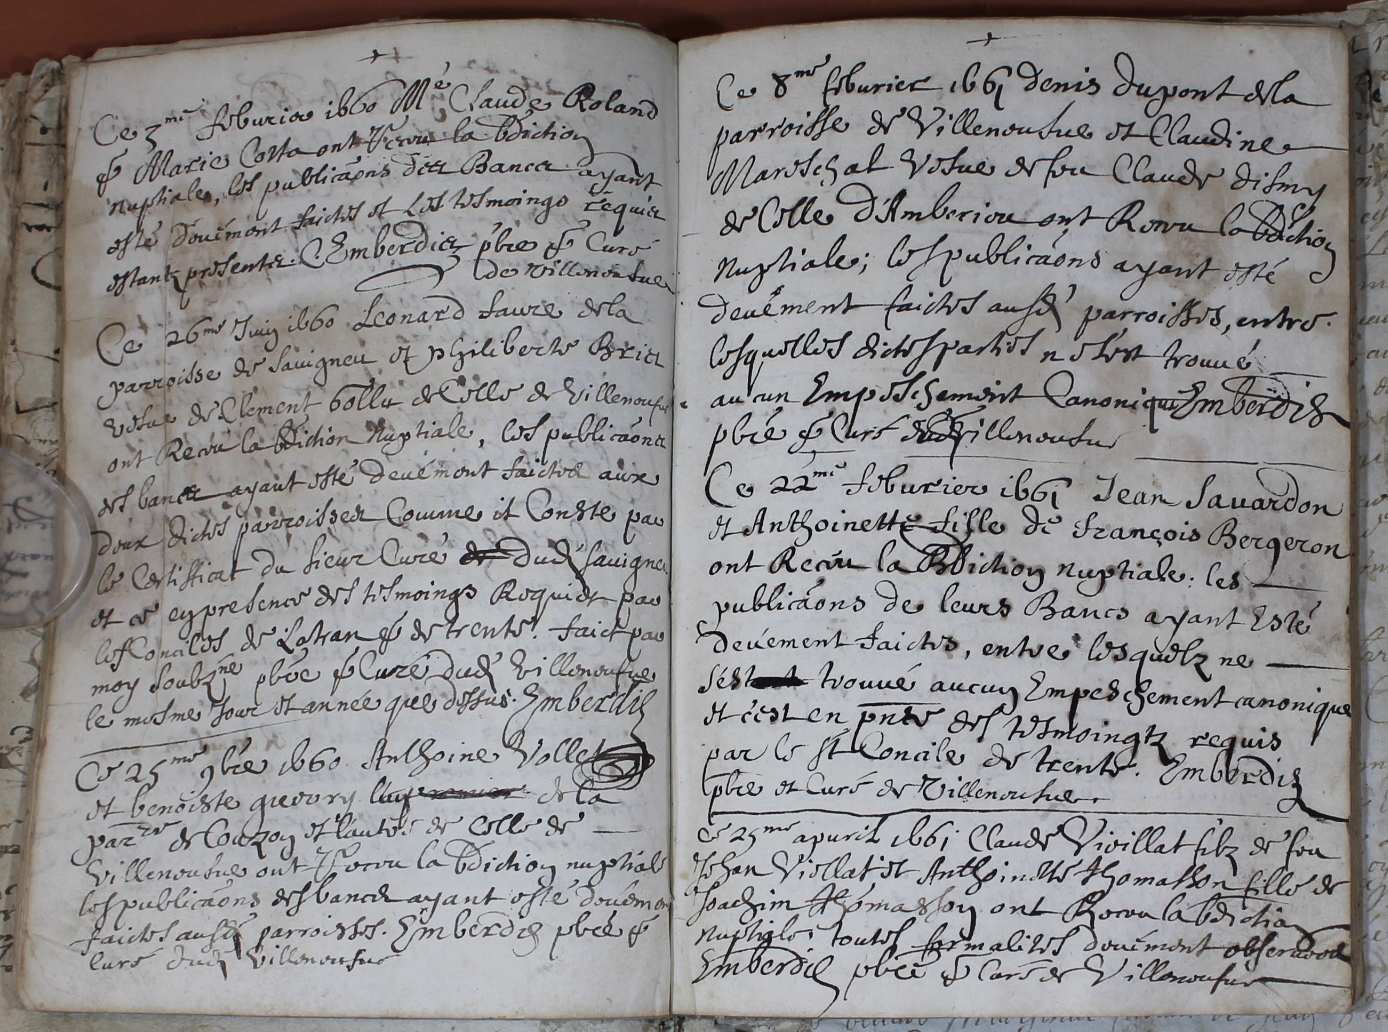 Ce 3me feburier 1660 Me Claude Roland
& Marie Cotta ont Receu la bdiction
nuptiale, les publicãons des Bancz ayant
esté deuëment faictes et Les tesmoings requis
estantz presentz. CEmberdiez pbre & Curé
de Villeneufue
Ce 26me Juin 1660 Leonard faure de la
parroisse de Sauigneu et philiberte Briet
vefue de Clement Gollu de Celle de Villeneufue
ont Receu la bdiction Nuptiale, les publicãons
des bancz ayant esté deuëment faictes aux
deux dictes parroisses Comme il Conste par
le Certifficat du sieur Curé dud Sauigneu
et ce en presence des tesmoings Requis par
les Conciles de Latran & de trente. faict par
moy soubzné pbre & Curé dud Villeneufue
le mesme jour et année que dessus. Emberdiez
Ce 25me 9bre 1660 Anthoine Vollet
et benoiste guerry de la
parre de Couzon et l'autre de Celle de
Villeneufue ont Receu la bdiction nuptiale
les publicãons des bancz ayant esté deuëment
faictes ausd parroisses. Emberdiez pbre &
curé dud Villeneufue
Ce 8me feburier 1661 Denis Dupont de la
parroisse de Villeneufue et Claudine
Mareschal Vefue de feu Claude
de Celle d'Amberieu ont Receu la bdiction
Nuptiale; les publicãons ayant esté
deuëment faictes ausd parroisses, entre
lesquelles dictes parties ne s'est trouué
aucun Empeschement Canonique Emberdiez
pbre & Curé dud Villeneufue
Ce 22me feburier 1661 Jean Sauardon
et Anthoinette fille de françois Bergeron
ont Receu la Bdiction nuptiale: les
publicãons de leurs Bancs ayant Esté
deuëment faictes, entre lesquelz ne
s'est trouué aucun Empeschement canonique
et c'est en pnce des tesmoingtz requis
par le st Concile de trente. Emberdiez
pbre et Curé de Villeneufue
Ce 25me apuril 1661 Claude Vieillat filz de feu
Jehan Viellat et Anthoinette thomasson fille de
Joachim thomasson ont Receu la bdictiõ
nuptiale toutes formalites deuëment obseruees
Emberdiez pbre & Curé de Villeneufue